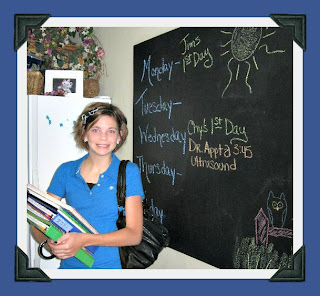 Jim's
1st Day
Monday-
Tuesday-
Wednesday
Chy's 1st Day
Dr. Appt @ 3:45
Ultrasound
Thursday-
day-